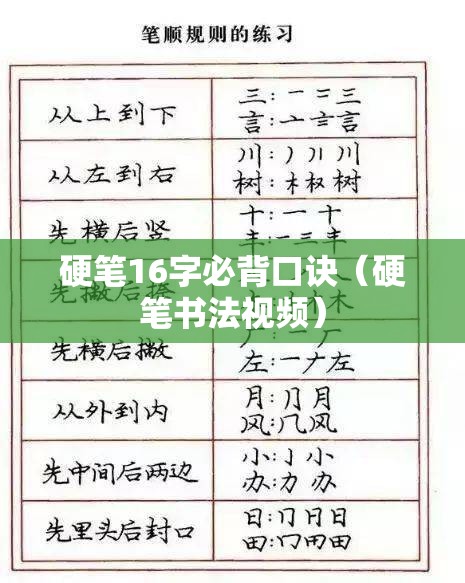 笔顺规则的练习
从上到下
三:一 二 三
言:亠 言 言
从左到右
川:丿 丿丨 川
树:木 权 树
先横后竖
十:一 十
丰:一 三 丰
硬笔16字必背口诀（硬
笔书法视频）
先撇后捺
木
先横后撇
厂:一 厂
左:一 𠂇 左
从外到内
月:⺆ 月
风:几 风
先中间后两边
小:亅 小
办:力 办
先里头后封口
日:冂 日 日
田:冂 田 田